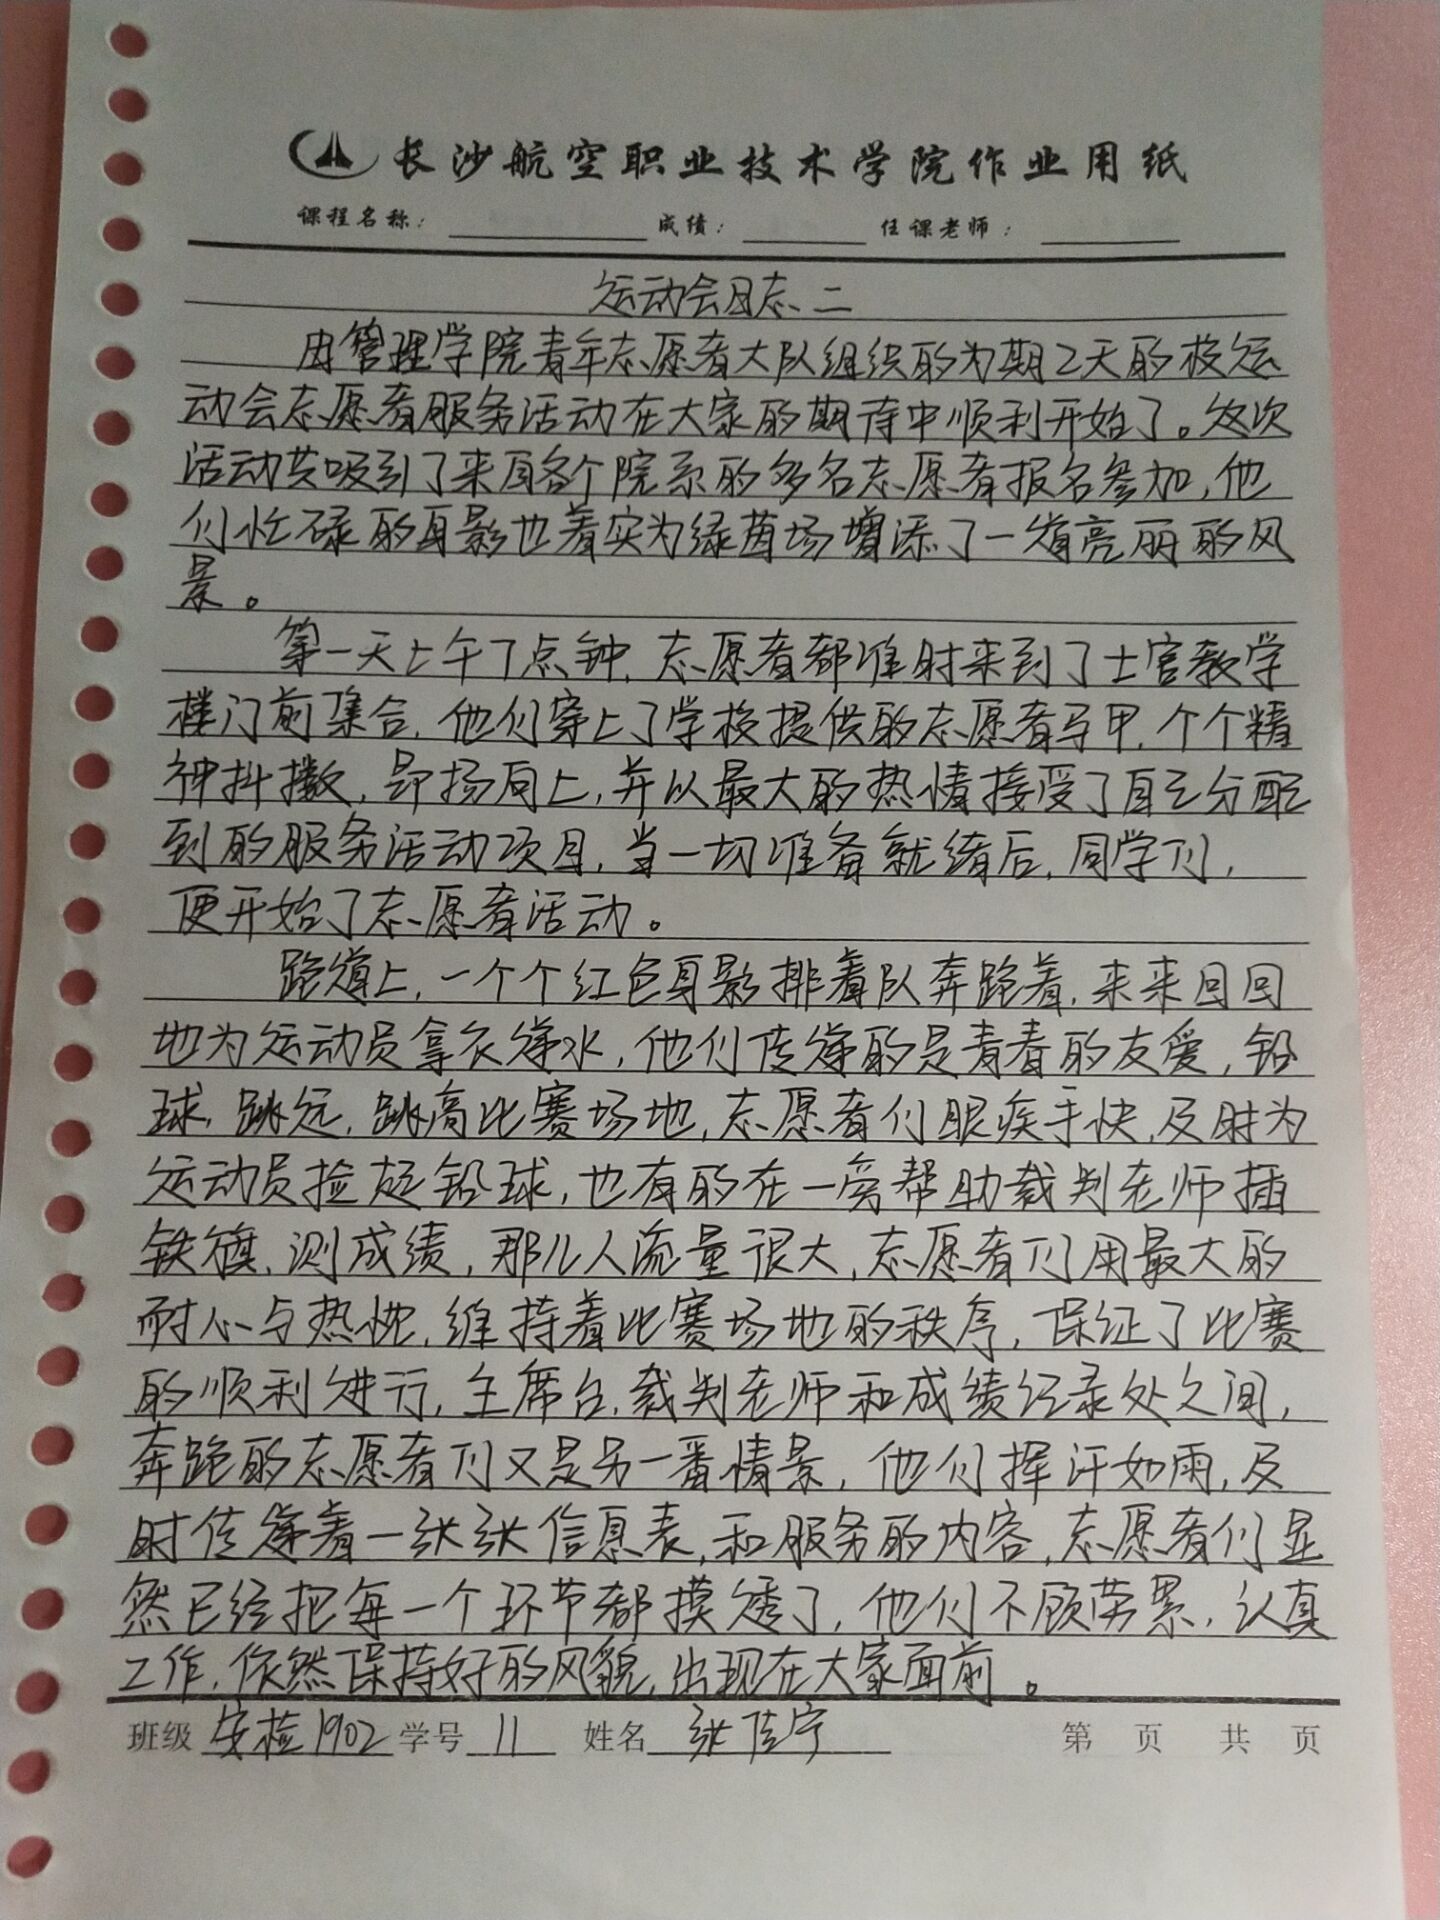 长沙航空职业技术学院作业用纸
课程名称： 成绩： 任课老师：
运动会日志二
由管理学院青年志愿者大队组织的为期2天的校运
动会志愿者服务活动在大家的期待中顺利开始了。这次
活动共吸引了来自各个院系的多名志愿者报名参加,他
们忙碌的身影也着实为绿茵场增添了一道亮丽的风
景。
第一天上午7点钟,志愿者都准时来到了士官教学
楼门前集合,他们穿上了学校提供的志愿者马甲,个个精
神抖擞,昂扬向上,并以最大的热情接受了自己分配
到的服务活动项目,当一切准备就绪后,同学们,
便开始了志愿者活动。
跑道上,一个个红色身影排着队奔跑着,来来回回
地为运动员拿衣递水,他们传递的是青春的友爱,铅
球,跳远,跳高比赛场地,志愿者们眼疾手快,及时为
运动员捡起铅球,也有的在一旁帮助裁判老师插
铁旗,测成绩,那儿人流量很大,志愿者们用最大的
耐心与热忱,维持着比赛场地的秩序,保证了比赛
的顺利进行,主席台,裁判老师和成绩记录处之间,
奔跑的志愿者们又是另一番情景,他们挥汗如雨,及
时传递着一张张信息表,和服务的内容,志愿者们显
然已经把每一个环节都摸透了,他们不顾劳累,认真
工作,依然保持好的风貌,出现在大家面前。
班级 安检1902 学号 11 姓名 张佳宁 第 页 共 页